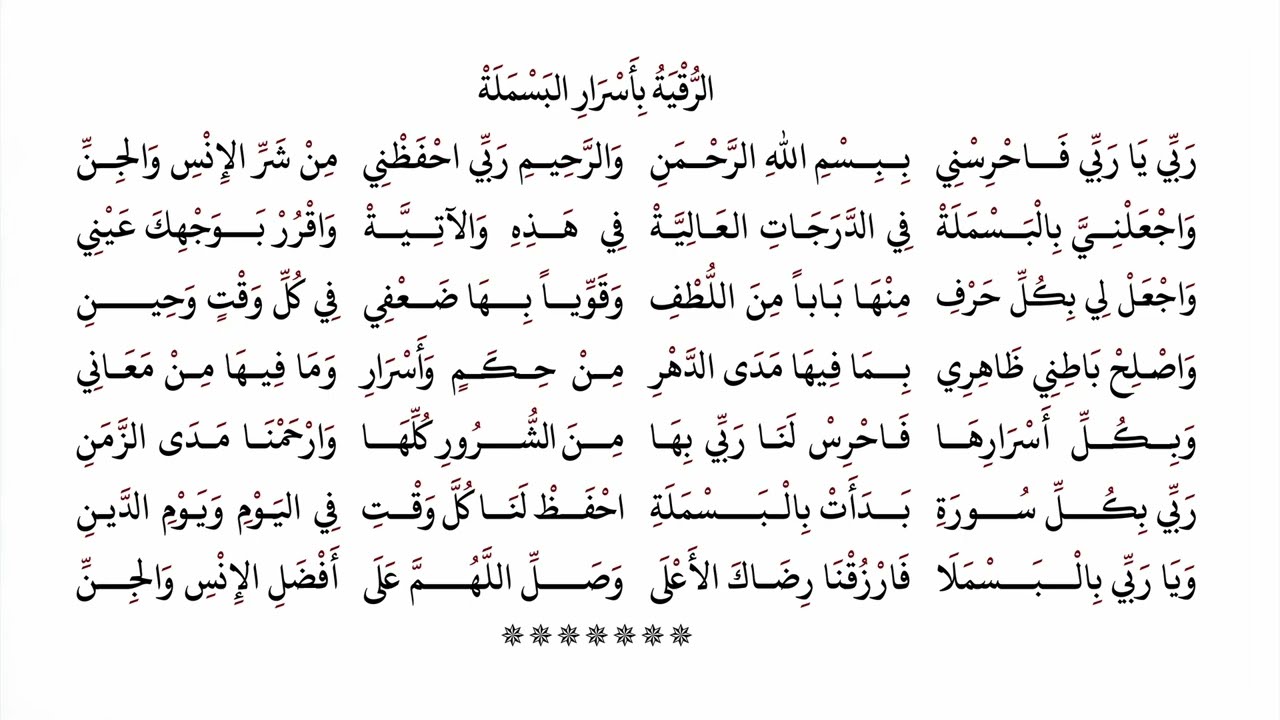 الرُّقْيَةُ بِأَسْرَارِ البَسْمَلَةْ
رَبِّي يَا رَبِّي فَاحْرِسْنِي بِبِسْمِ اللهِ الرَّحْمَنِ وَالرَّحِيمِ رَبِّي احْفَظْنِي مِنْ شَرِّ الإِنْسِ وَالجِنِّ
وَاجْعَلْنِيَّ بِالْبَسْمَلَةْ فِي الدَّرَجَاتِ العَالِيَّةْ فِي هَذِهِ وَالآتِيَّةْ وَاقْرُرْ بَوَجْهِكَ عَيْنِي
وَاجْعَلْ لِي بِكُلِّ حَرْفِ مِنْهَا بَاباً مِنَ اللُّطْفِ وَقَوِّياً بِهَا ضَعْفِي فِي كُلِّ وَقْتٍ وَحِينِ
وَاصْلِحْ بَاطِنِي ظَاهِرِي بِمَا فِيهَا مَدَى الدَّهْرِ مِنْ حِكَمٍ وَأَسْرَارِ وَمَا فِيهَا مِنْ مَعَانِي
وَبِكُلِّ أَسْرَارِهَا فَاحْرِسْ لَنَا رَبِّي بِهَا مِنَ الشُّرُورِ كُلِّهَا وَارْحَمْنَا مَدَى الزَّمَنِ
رَبِّي بِكُلِّ سُورَةِ بَدَأَتْ بِالْبَسْمَلَةِ احْفَظْ لَنَا كُلَّ وَقْتِ فِي اليَوْمِ وَيَوْمِ الدَّينِ
وَيَا رَبِّي بِالْبَسْمَلَا فَارْزُقْنَا رِضَاكَ الأَعْلَى وَصَلِّ اللَّهُمَّ عَلَى أَفْضَلِ الإِنْسِ وَالجِنِّ
✵✵✵✵✵✵✵